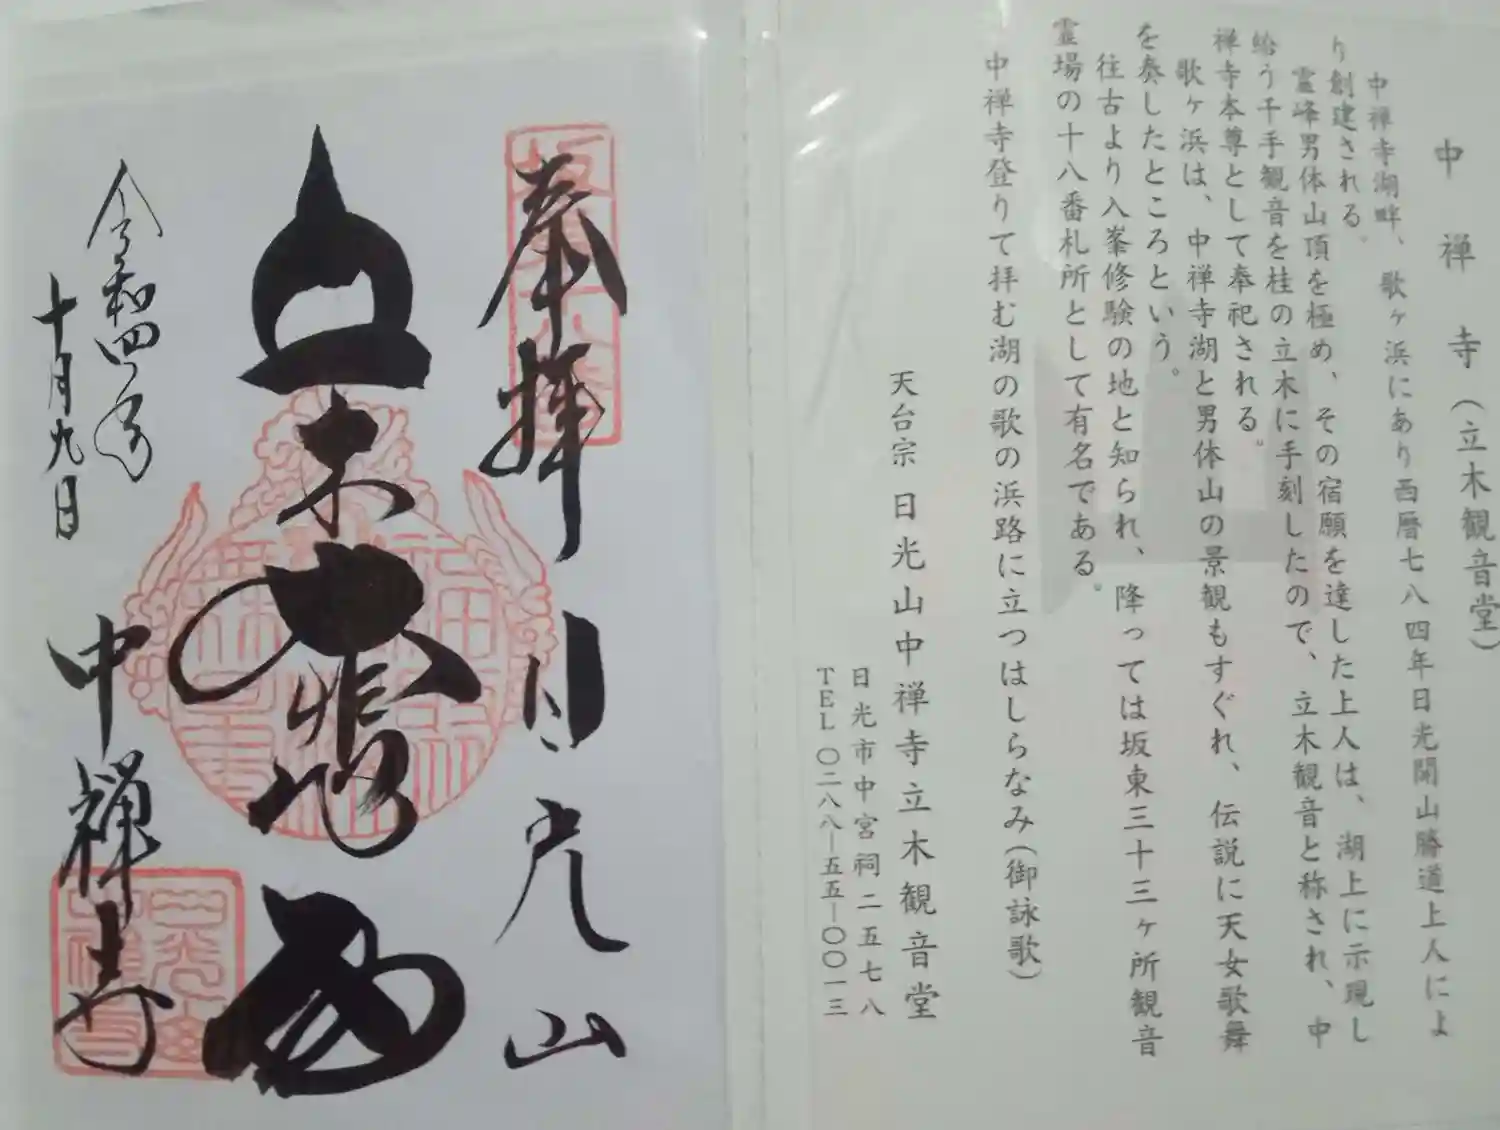 中禅寺（立木観音堂）
中禅寺湖畔、歌ヶ浜にあり西暦七八四年日光開山勝道上人によ
り創建される。
霊峰男体山頂を極め、その宿願を達した上人は、湖上に示現し
給う千手観音を桂の立木に手刻したので、立木観音と称され、中
禅寺本尊として奉祀される。
歌ヶ浜は、中禅寺湖と男体山の景観もすぐれ、伝説に天女歌舞
を奏したところという。
往古より入峯修験の地と知られ、降っては坂東三十三ヶ所観音
霊場の十八番札所として有名である。
中禅寺登りて拝む湖の歌の浜路に立つはしらなみ（御詠歌）
天台宗 日光山中禅寺立木観音堂
日光市中宮祠二五七八
TEL〇二八八―五五―〇〇一三
奉拝 日光山
立木
令和四年
十月九日
中禅寺